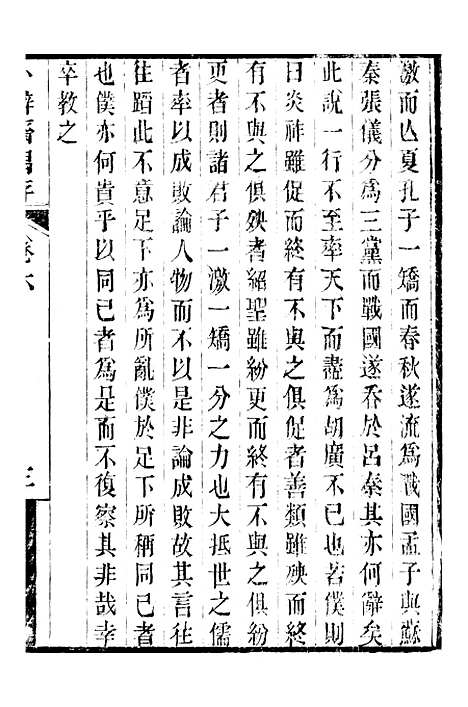 激而亾夏孔子一矯而春秋遂流爲戰國孟子與蘇
秦張儀分爲三黨而戰國遂吞於呂秦其亦何辭矣
此說一行不至率天下而盡爲胡廣不已也若僕則
曰炎祚雖促而終有不與之俱促者善類雖殃而終
有不與之俱殃者紹聖雖紛更而終有不與之俱紛
更者則諸君子一激一矯一分之力也大抵世之儒
者率以成敗論人物而不以是非論成敗故其言往
往蹈此不意足下亦爲所亂僕於足下所稱同已者
也僕亦何貴乎以同已者爲是而不復察其非哉幸
卒教之
卷六
三